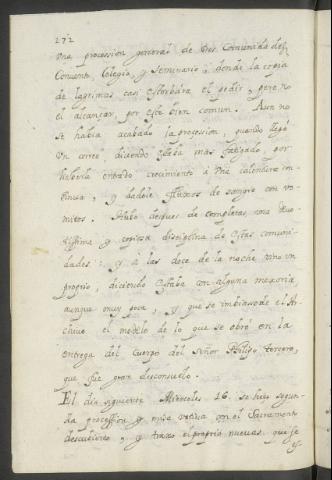 272
Una procession general de tres Comunidades,
Convento, Colegio, y Seminario; donde la copia
de lagrimas casi estorbara el pedir, pero no
el alcançar, por este bien comun. Aun no
se habia acabado la procession, quando llegó
un correo, diciendo estaba mas fatigada, por
haberla entrado crecimiento, y una calentura in-
tensa, y dadole fluxos de sangre con vo-
mitos. Hubo despues de completas, una
y copiosa disciplina de estas comuni-
dades: y à las doce de la noche vino un
proprio, diciendo estaba con alguna mexoria,
aunque muy poca, y que se imbiase de el Ar-
chivo el modelo de lo que se obró en la
entrega del Cuerpo del Señor Philipo tercero,
que fue gran desconsuelo.
El dia siguiente Miercoles 16 se hizo segun-
da procession y misa votiva con el Sacramento
descubierto, y traxo el proprio nuevas que se
es-